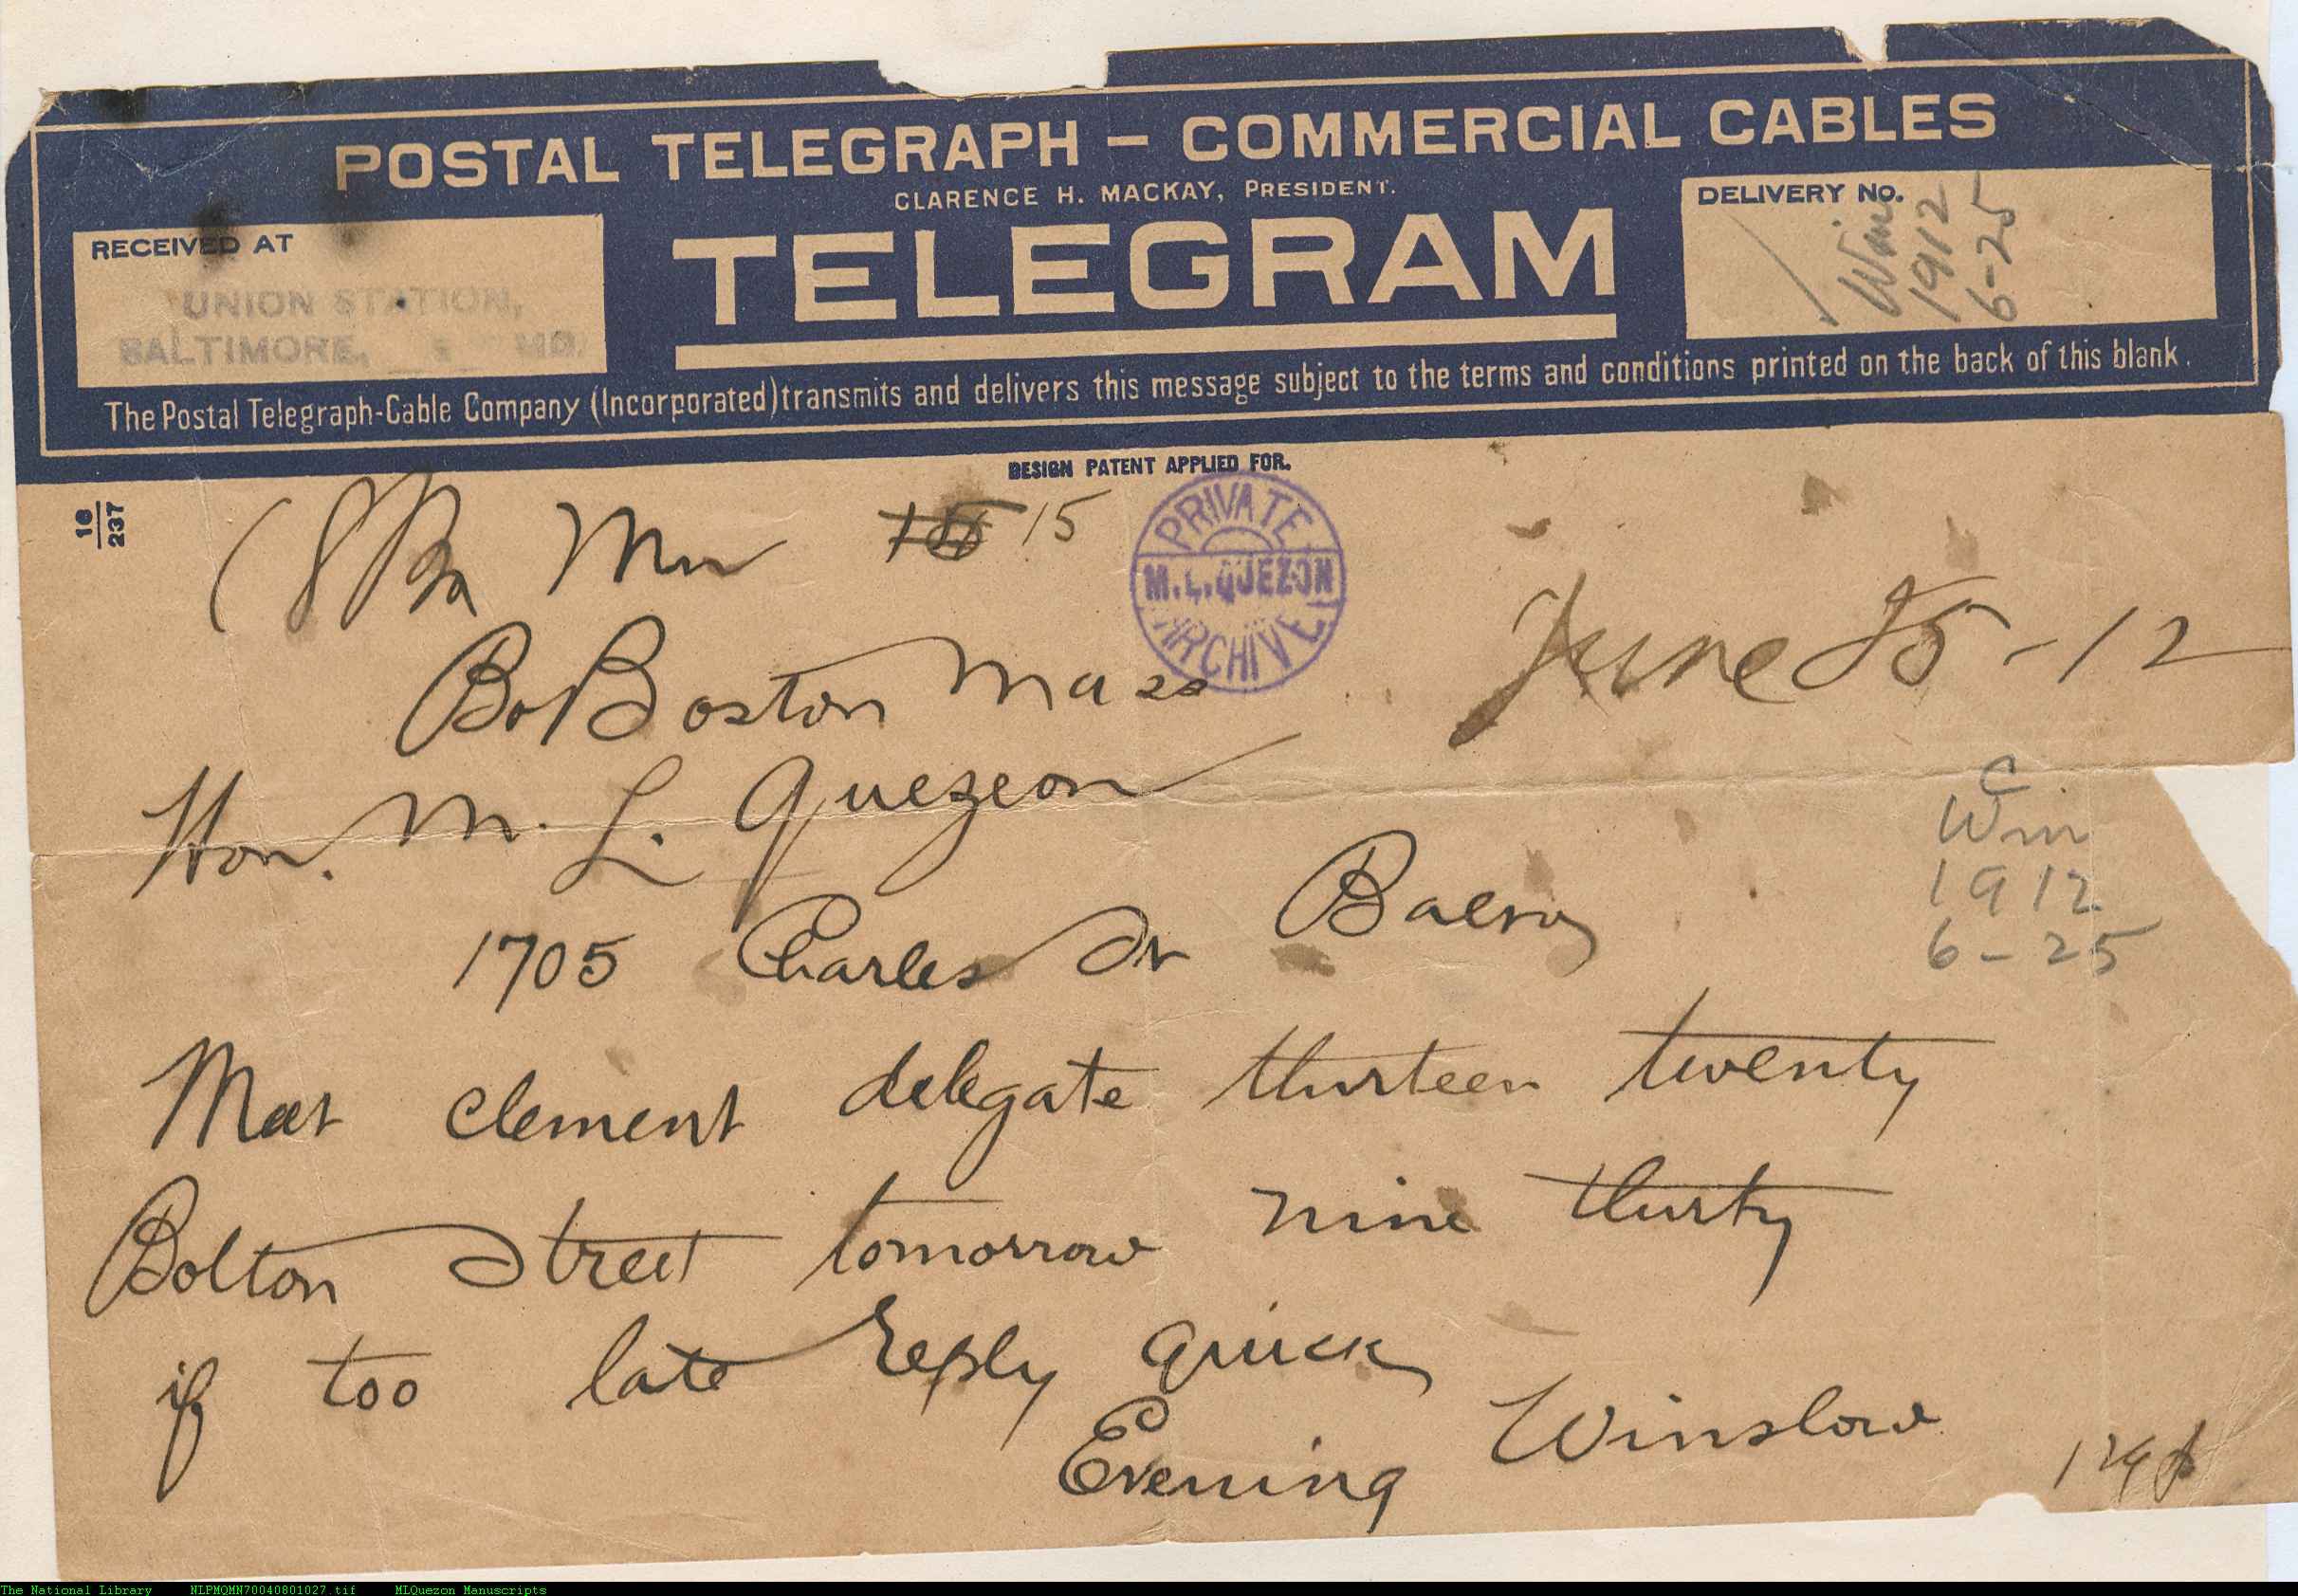 POSTAL TELEGRAPH — COMMERCIAL CABLES
CLARENCE H. MACKAY, PRESIDENT.
RECEIVED AT
UNION STATION,
BALTIMORE, MD.
TELEGRAM
DELIVERY No.
Win
1912
6-25
The Postal Telegraph-Cable Company (Incorporated) transmits and delivers this message subject to the terms and conditions printed on the back of this blank.
DESIGN PATENT APPLIED FOR.
16
237
15
PRIVATE
M.L.QUEZON
ARCHIVE
Bo Boston Mass
June 25-12
Hon. M. L. Quezeon
C
Win
1912
6-25
1705 Charles St Balto
Meet clement delegate thirteen twenty
Bolton Street tomorrow nine thirty
if too late reply quick
Evening Winslow
The National Library NLPMQMN70040801027.tif MLQuezon Manuscripts